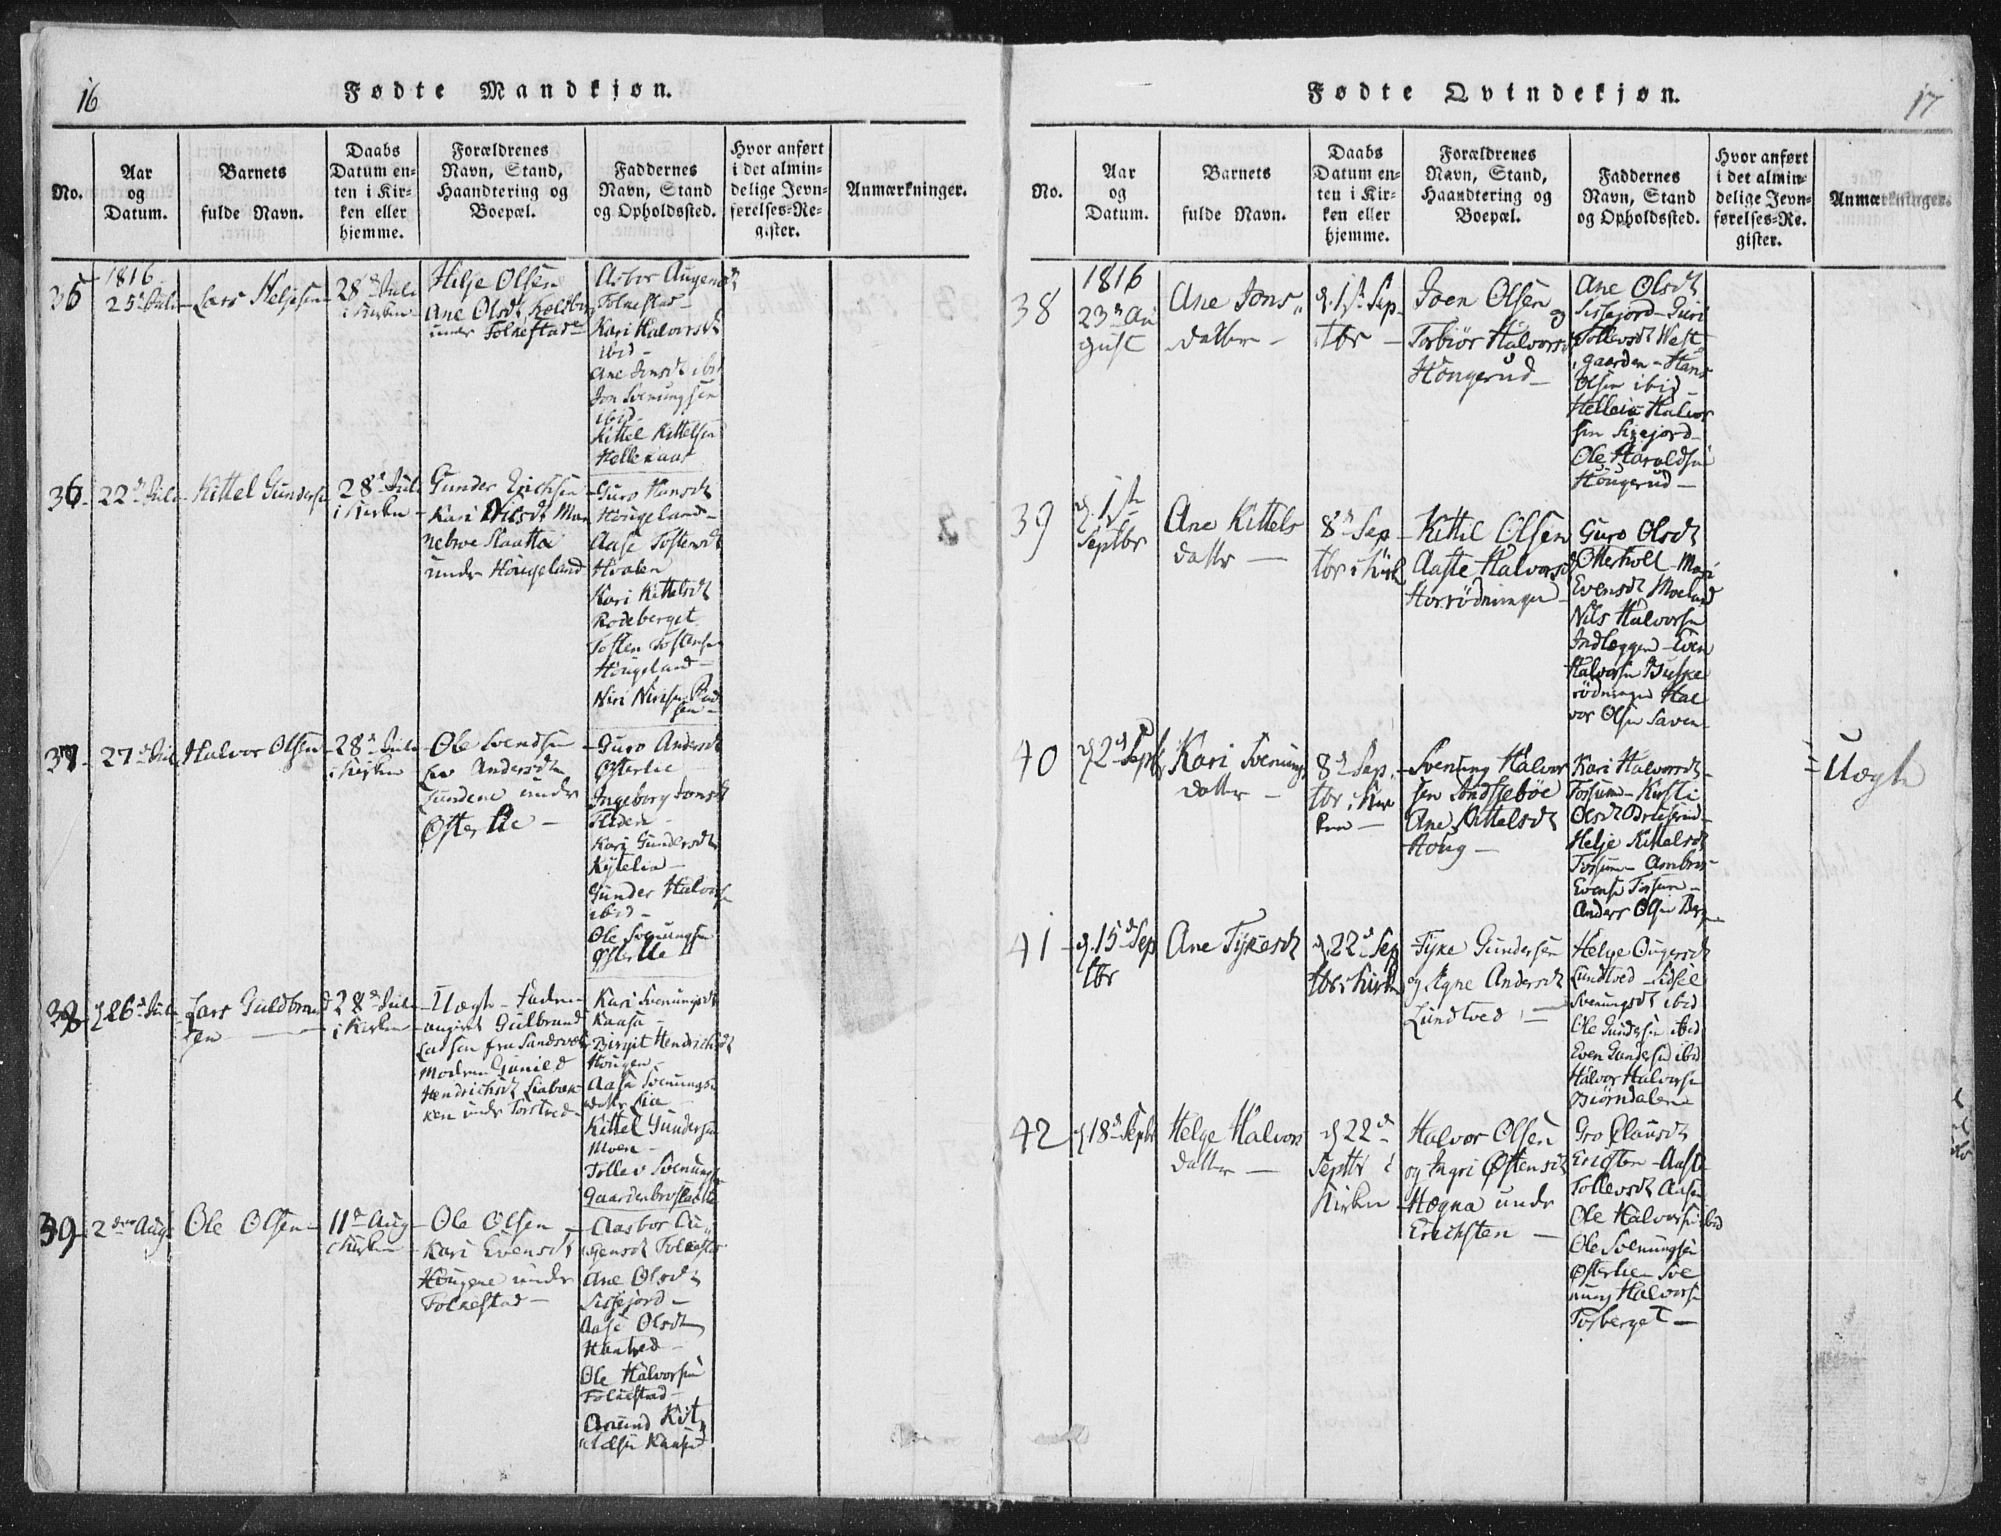 16
Fødte Mandkjøn.
No.
Aar
og
Datum.
Barnets
fulde Navn.
Daabs
Datum en-
ten i Kir-
ken eller
hjemme.
Forældrenes
Navn, Stand,
Haandtering og
Boepæl.
Faddernes
Navn, Stand
og Opholdssted.
Hvor anført
i det almin-
delige Jevn-
førelses-Re-
gister.
Anmærkninger.
35
1816
25 Juli
Lars Heljesen
28 Juli
i Kirken
Hilje Olsen
Ane Olsdt
under Folkestad
Asbor
Folkestad
Kari Halvorsdt
ibid
Ane Jonsdt ibid
Jon Svenungsen
ibid
Kittel Kittelsen
Hellekaas
36
22 Juli
Kittel Gundersen
28 Juli
i Kirken
Gunder Erichsen
Kari
under Hougeland
Guro Hansdt
Hougeland
Aase Tostensdt
Hvalen
Kari Kittelsdt
Rodeberget
Tosten Tostensen
Hougeland
Niri Nirisen
37
27 Juli
Halvor Olsen
28 Juli
i Kirken
Ole Svendsen
Andersdt
Lundene under
Østerlie
Guro Andersdt
Østerlie
Ingeborg Jonsdt
Kari Gundersdt
Gunder Halvors
ibid
Ole Svenungsen
Østerlie
38
26 Juli
Lars Guldbrand
sen
28 Juli
i Kirken
Uægte Faderen
angivet Gulbrand
Larsen fra Sandsvær
Moderen Gunild
Hendrichsdt
under Torstved
Kari Svenungsdt
Kaasa
Birgit Hendrichsdt
Hougen
Aase Svenungs
datter Lia
Kittel Gundersen
Moen
Tollev Svenungs
39
2den Aug
Ole Olsen
11 Aug
i Kirken
Ole Olsen
Kari Evensdt
Hougene under
Folkestad
Aasbor Au
gensdt Folkestad
Ane Olsdt
Sissejord
Aase Olsdt
Hantved
Ole Halvorsen
Folkestad
Amund Kit
telsen Kaasa
17
Fødte Qvindekjøn.
No.
Aar
og
Datum.
Barnets
fulde Navn.
Daabs
Datum en-
ten i Kir-
ken eller
hjemme.
Forældrenes
Navn, Stand,
Haandtering og
Boepæl.
Faddernes
Navn, Stand
og Opholdssted.
Hvor anført
i det almin-
delige Jevn-
førelses-Re-
gister.
Anmærkninger.
38
1816
23 Au
gust
Ane Jons
datter
d. 1st Sep
tbr
Joen Olsen og
Torbiør Halvorsdt
Hougerud
Ane Olsdt
Sissejord Guri
Tollevsdt West
gaarden Hans
Olsen ibid
Helleik Halvor
sen Sisejord
Ole Haroldsen
Hougerud
39
d. 1st
Septbr
Ane Kittels
datter
8 Sep
tbr i Kirk
Kittil Olsen
Aaste Halvorsd
Guro Olsdt
Otterholt Mari
Evensdt Moeland
Nils Halvorsen
Indleggen Even
Halvorsen Buske
rødningen Hal
vor Olsen Saven
40
d 2 Septbr
Kari Svenungs
datter
8 Sep
tbr i Kir
ken
Svenung Halvor
sen
Ane Kittelsdt
Houg
Kari Halvorsdt
Forsum Kirsti
Olsdt
Helje Kittelsdt
Forsum Ambros
Evensen Forsum
Anders Olsen
Uægte
41
d. 15 Sep
tbr
Ane Tykesdt
d. 22 Sep
tbr i Kirken
Tyke Gundersen
og Agne Andersdt
Lundtved
Helge
Lundtved Sidsel
Svenungsdt ibid
Ole Gundersen ibid
Even Gundersen ibid
Halvor Halvorsen
Biørndalen
42
d 18 Septbr
Helge Halvors
datter
d 22
Septbr i
Kirken
Halvor Olsen
og Ingri Østensdt
Hægna under
Erichsten
Gro Clausdt
Erichsten Aaste
Tollevsdt Aasen
Ole Halvorsen ibid
Ole Svenungsen
Østerlien Sve
nung Halvorsen
Torberget